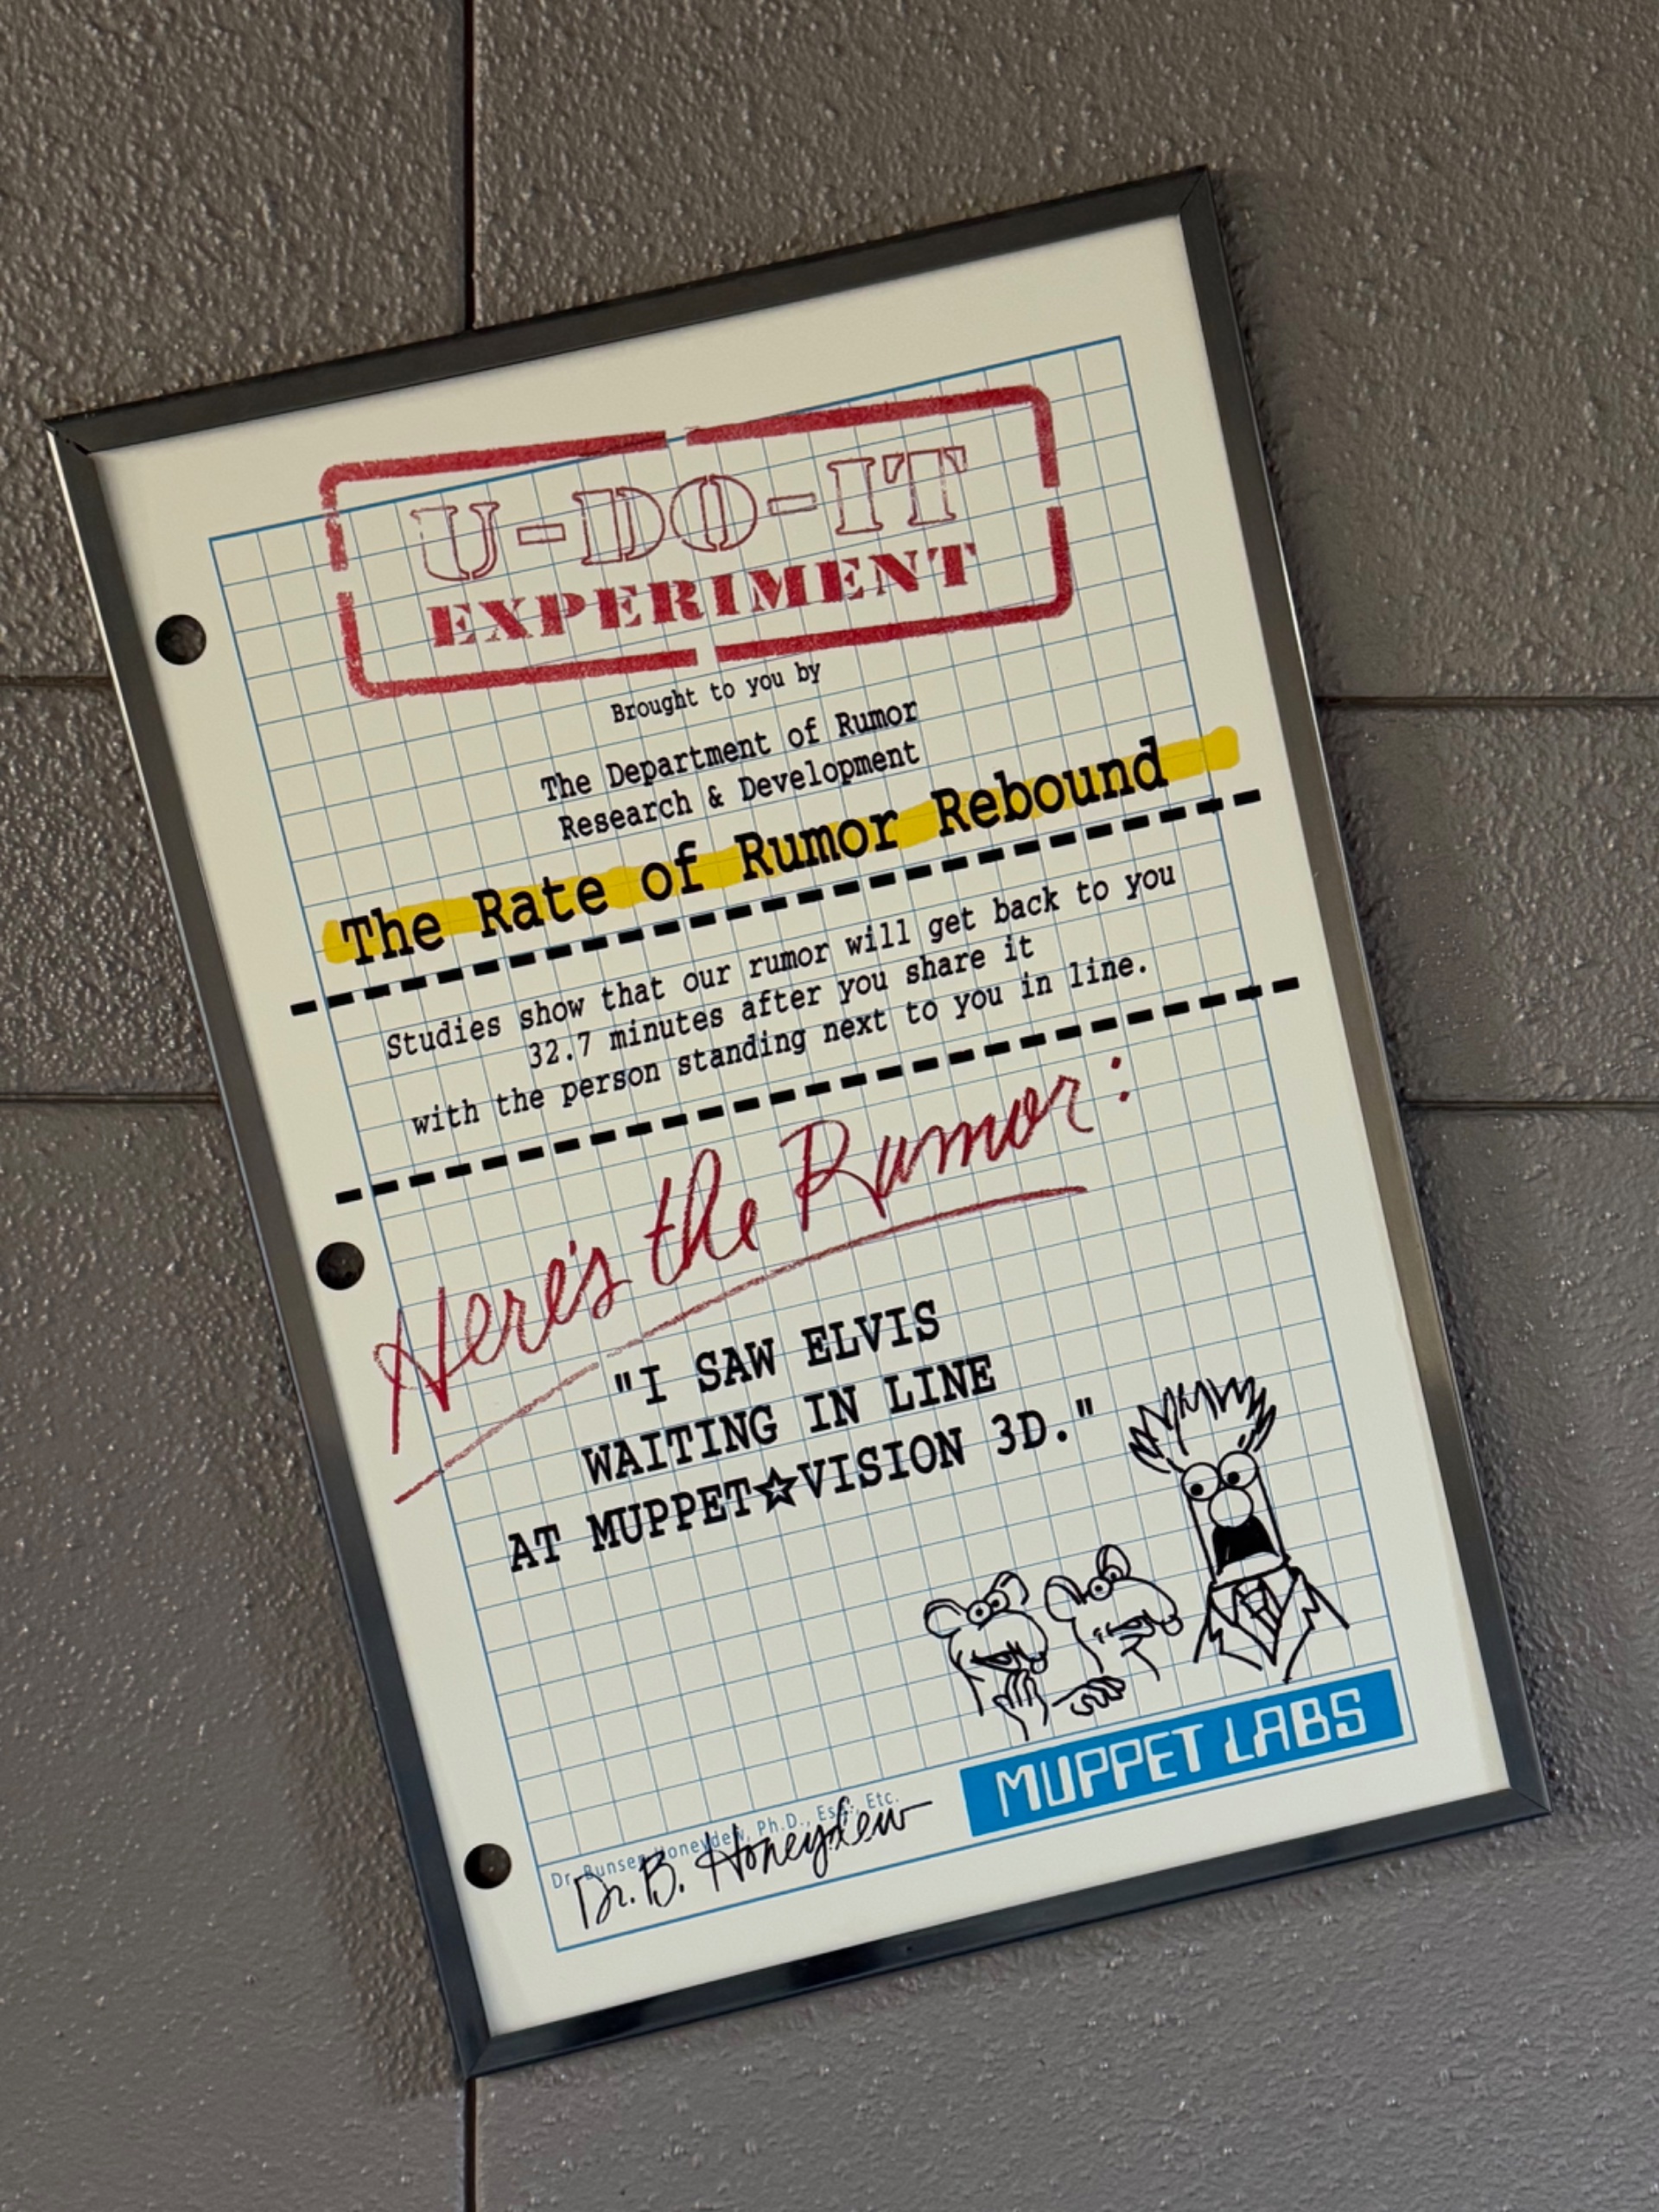 U-DO-IT
EXPERIMENT
Brought to you by
The Department of Rumor
Research & Development
The Rate of Rumor Rebound
Studies show that our rumor will get back to you
32.7 minutes after you share it
with the person standing next to you in line.
Here's the Rumor:
"I SAW ELVIS
WAITING IN LINE
AT MUPPET☆VISION 3D."
MUPPET LABS
Dr. Bunsen Honeydew, Ph.D., Esq., Etc.
Dr. B. Honeydew